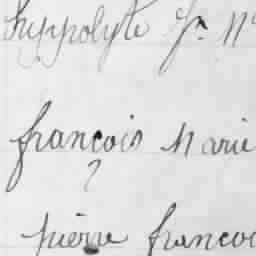 hyppolyte Jn M
françois Marie
pierre françoi